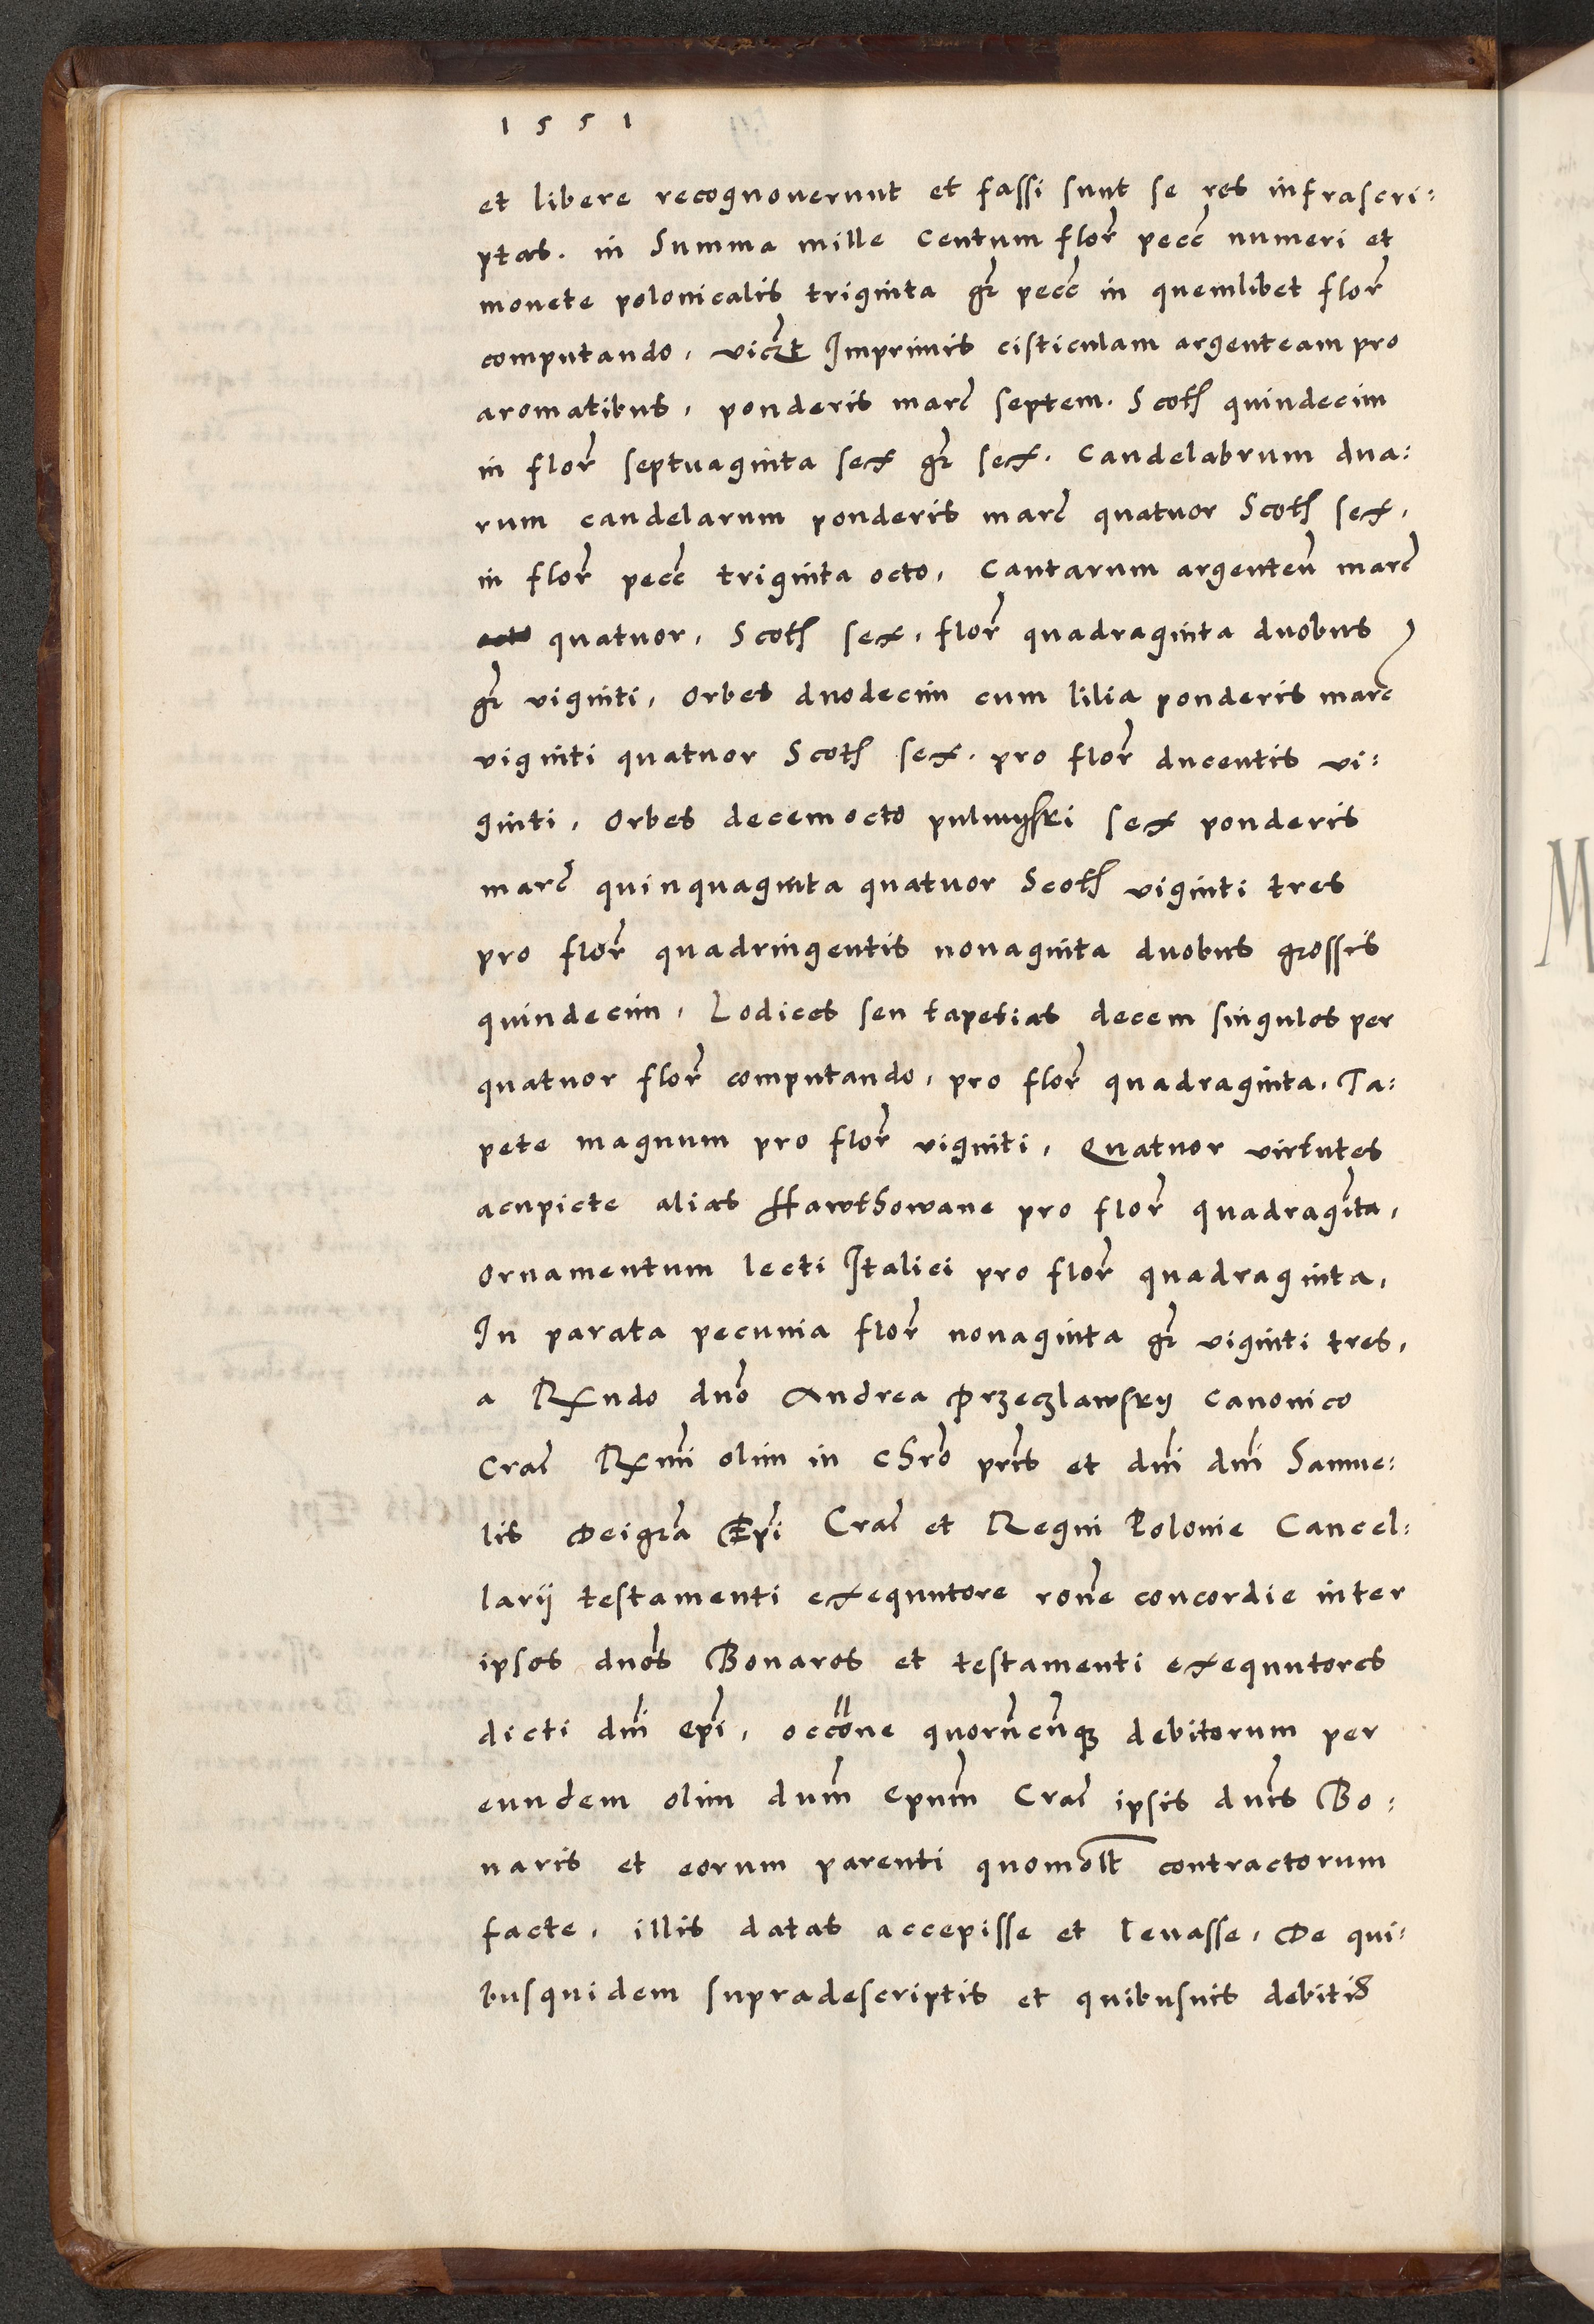 1551
et libere recognouerunt et fassi sunt se res infrascri:
ptas. in Summa mille Centum flor pecc numeri et
monete polonicalis triginta gr pecc in quemlibet flor
computando, vidzt Imprimis cisticulam argenteam pro
aromatibus, ponderis marc septem. Scoth quindecim
in flor septuaginta sex gr sex. Candelabrum dua:
rum candelarum ponderis marc quatuor Scoth sex,
in flor pecc triginta octo, Cantarum argenteu marc
octo quatuor, Scoth sex, flor quadraginta duobus
gr viginti, Orbes duodecim cum lilia ponderis marc
viginti quatuor Scoth sex. pro flor ducentis vi:
ginti, Orbes decemocto pulmyski sex ponderis
marc quinquaginta quatuor Scoth viginti tres
pro flor quadringentis nonaginta duobus grossis
quindecim, Lodices seu tapetias decem singulos per
quatuor flor computando, pro flor quadraginta, Ta:
pete magnum pro flor viginti, Quatuor virtutes
acupicte alias Hawthowane pro flor quadragita,
Ornamentum lecti Italici pro flor quadraginta,
In parata pecunia flor nonaginta gr viginti tres,
a Rxndo dno Andrea Przeczlawsky Canonico
Crac Rxmi olim in chro pris et dni dni Samue:
lis Deigra Epi Crac et Regni Polonie Cancel:
larij testamenti exequutore rone concordie inter
ipsos dnos Bonaros et testamenti exequutores
dicti dni epi, occone quorucuq debitorum per
eundem olim dnm Epum Crac ipsis dnis Bo:
naris et eorum parenti quomolt contractorum
facte, illis datas accepisse et leuasse, De qui:
busquidem supradescriptis et quibusuis debitis